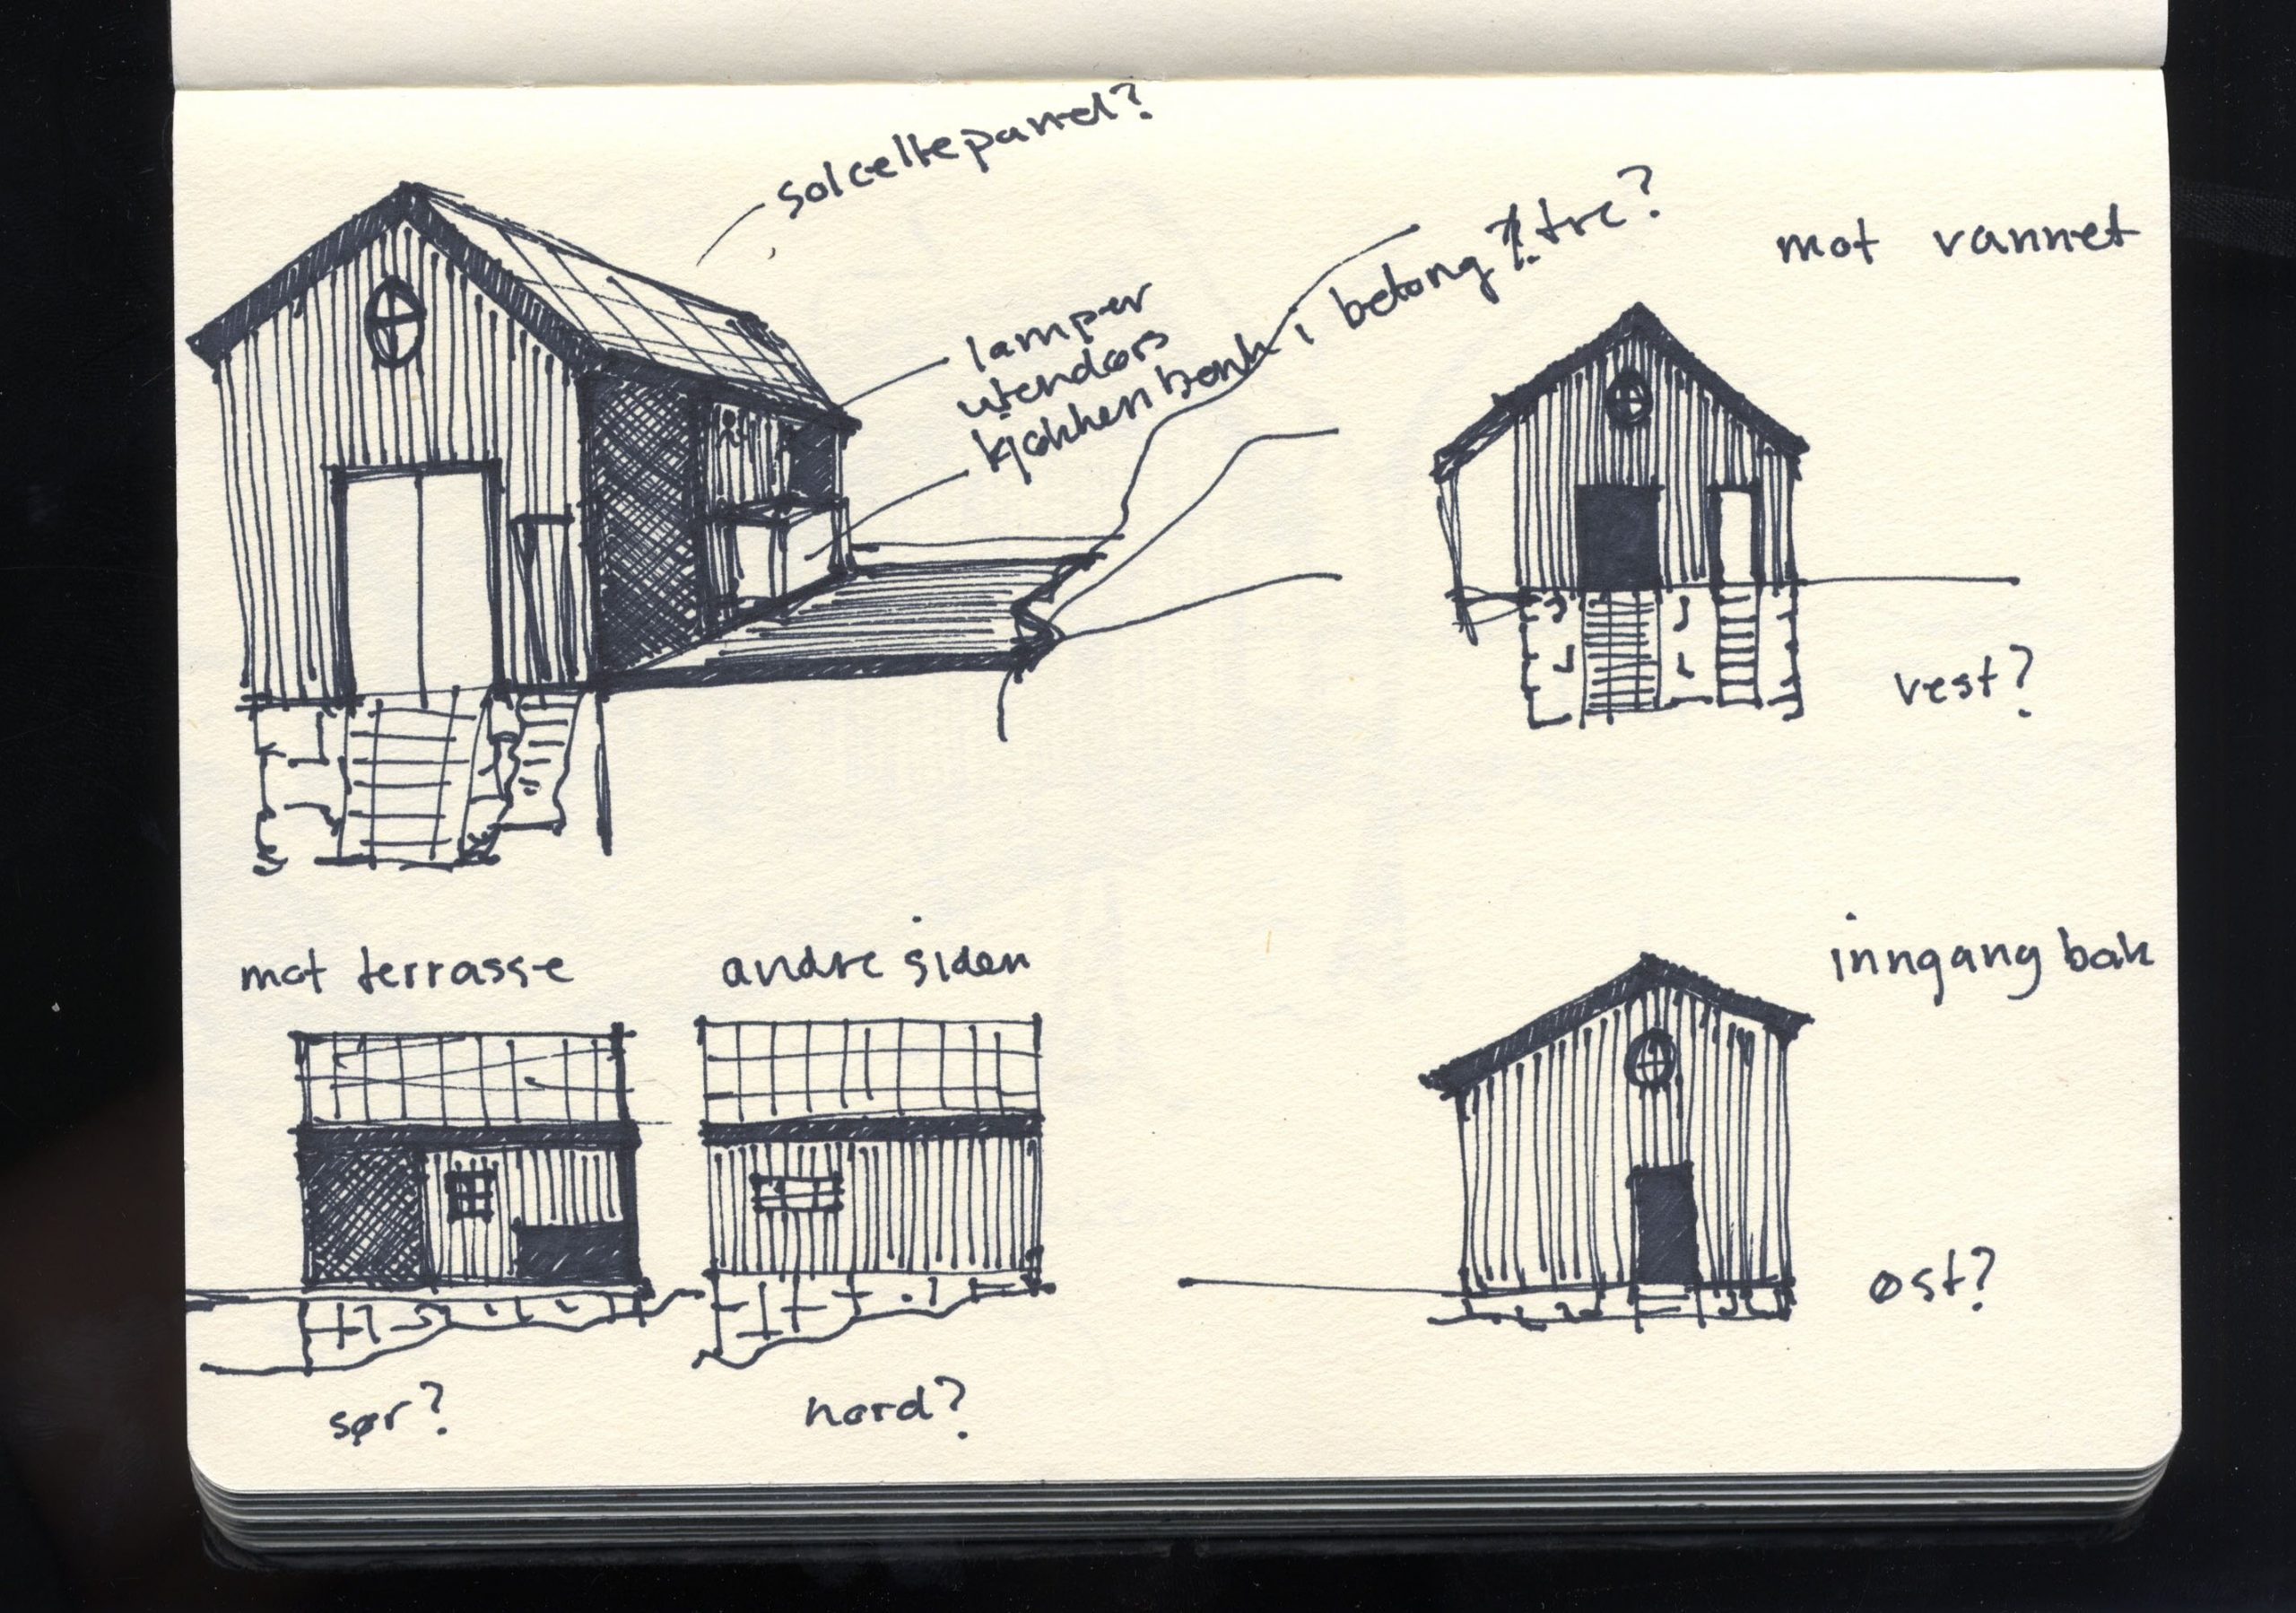 solcellepanel?
lamper
utendørs
kjøkkenbenk i betong & tre?
mot vannet
vest?
mot terrasse
andre siden
inngang bak
sør?
nord?
øst?